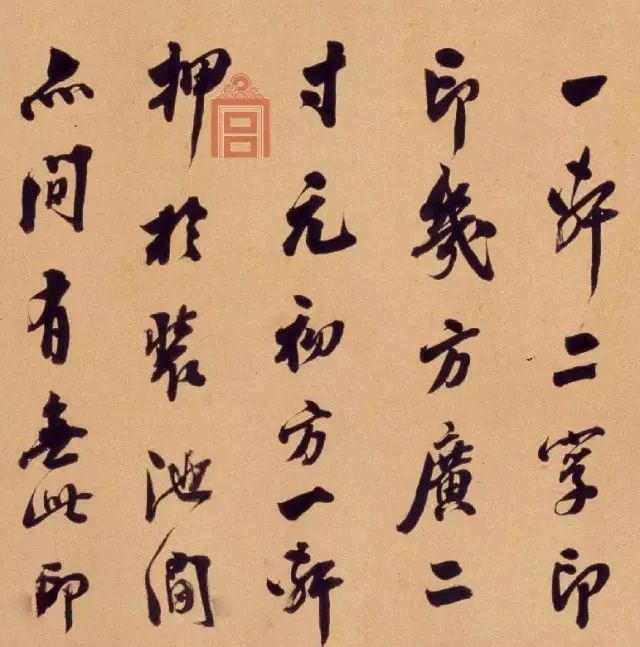 一軒二字印
印幾方廣二
寸元初方一軒
押於裝池間
亦間有無此印